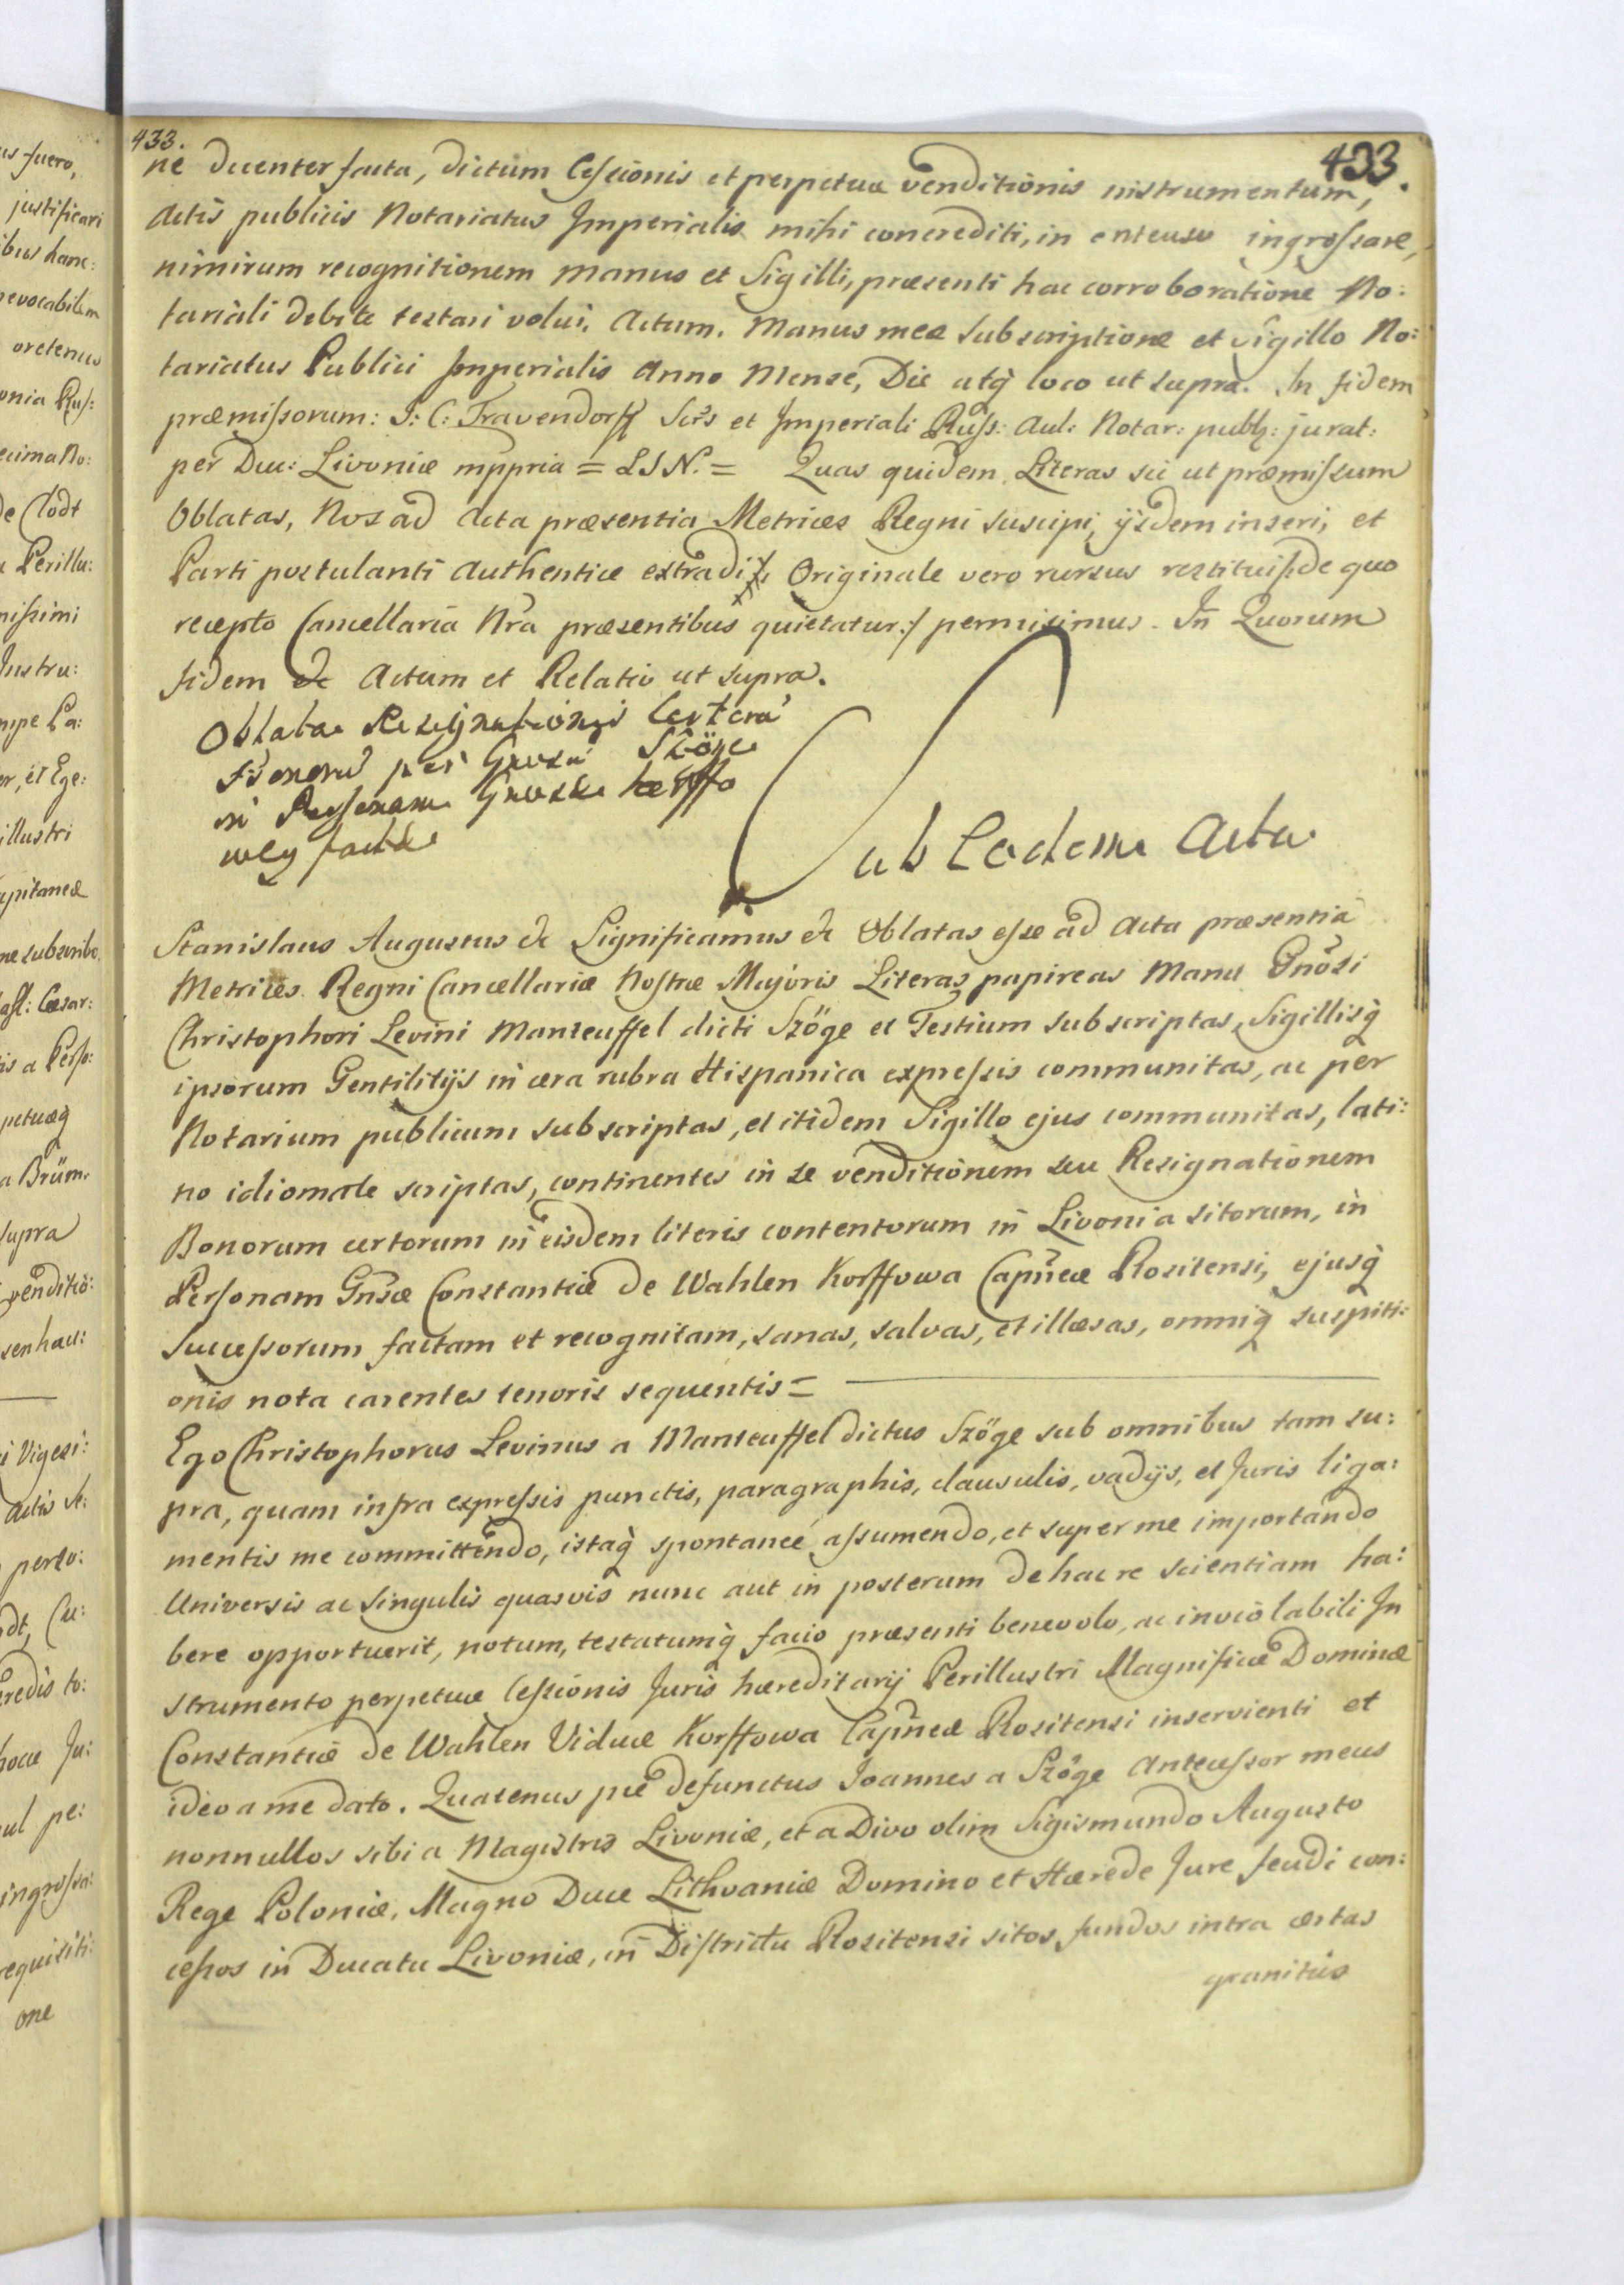 433.
433.
ne decenter facta, dictum Cessionis et perpetuæ venditionis instrumentum,
Actis publicis Notariatus Imperialis mihi concrediti, in extenso ingrossare,
nimirum recognitionem manus et Sigilli, præsenti hac corroboratione No:
tariali debite testari volui. Actum. Manus meæ subscriptione et Sigillo No:
tariatus Publici Imperialis Anno Mense, Die atq; loco ut supra. In fidem
præmissorum: J: C: Travendorff Scrs et Imperiali Russ: Aul: Notar: publ: jurat:
per Duc: Livoniæ mppria = LSN. = Quas quidem Literas sic ut præmissum
Oblatas, Nos ad Acta præsentia Metrices Regni suscipi, ijsdem inseri, et
Parti postulanti authentice extradi, Originale vero rursus restitui /: de quo
recepto Cancellaria Nra præsentibus quietatur :/ permisimus. In Quorum
fidem &c Actum et Relatio ut supra.
Oblata Resignationis Certorū
Bonorū per Gnosū Szöge
in Personam Gnosæ Korffo
wey factæ
ab Eadem Acta
Stanislaus Augustus &c Significamus &c Oblatas esse ad Acta præsentia
Metrices Regni Cancellariæ Nostræ Majoris Literas papireas Manu Gnosi
Christophori Levini Manteuffel dicti Szöge et Testium subscriptas, Sigillisq;
ipsorum Gentilitijs in cera rubra Hispanica expressis communitas, ac per
Notarium publicum subscriptas, et itidem Sigillo ejus communitas, lati:
no idiomate scriptas, continentes in se venditionem seu Resignationem
Bonorum certorum in eisdem literis contentorum in Livonia sitorum, in
Personam Gnsæ Constantiæ de Wahlen Korffowa Capneæ Rositensi, ejusq;
Successorum factam et recognitam, sanas, salvas, et illæsas, omniq; suspiti:
onis nota carentes tenoris sequentis =
Ego Christophorus Levinus a Manteuffel dictus Szöge sub omnibus tam su:
pra, quam infra expressis punctis, paragraphis, clausulis, vadijs, et Juris liga:
mentis me committendo, istaq; spontaneé assumendo, et super me importando
Universis ac singulis quasvis nunc aut in posterum de hac re scientiam ha:
bere opportuerit, notum, testatumq; facio præsenti benevolo, ac inviolabili In
strumento perpetuæ Cessionis Juris hæreditarij Perillustri Magnificæ Dominæ
Constantiæ de Wahlen Viduæ Korffowa Capneæ Rositensi inservienti et
ideo a me dato. Quatenus pie defunctus Joannes a Szöge Antecessor meus
nonnullos sibi a Magistris Livoniæ, et a Divo olim Sigismundo Augusto
Rege Poloniæ, Magno Duce Lithvaniæ Domino et Hærede Jure feudi con:
cessos in Ducatu Livoniæ, in Districtu Rositensi sitos, fundos intra certas
granities